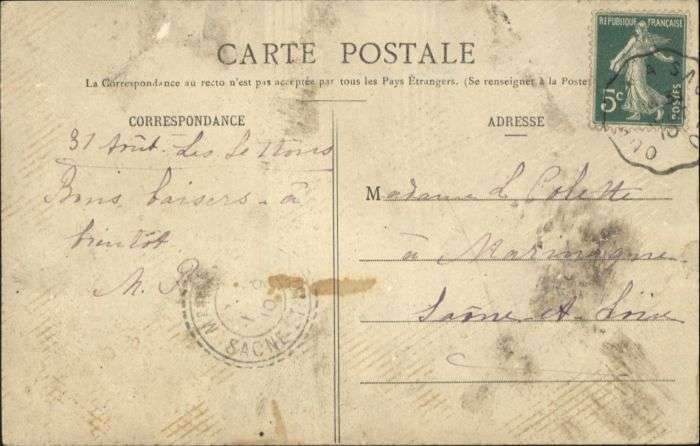 CARTE POSTALE
La Correspondance au recto n'est pas acceptée par tous les Pays Étrangers. (Se renseigner à la Poste
REPUBLIQUE FRANÇAISE
5c
POSTES
CORRESPONDANCE
31 Août. Les
Bons baisers - à
bientôt
M. P
SAONE-ET
ADRESSE
Madame L Colette
à
Saône et Loire